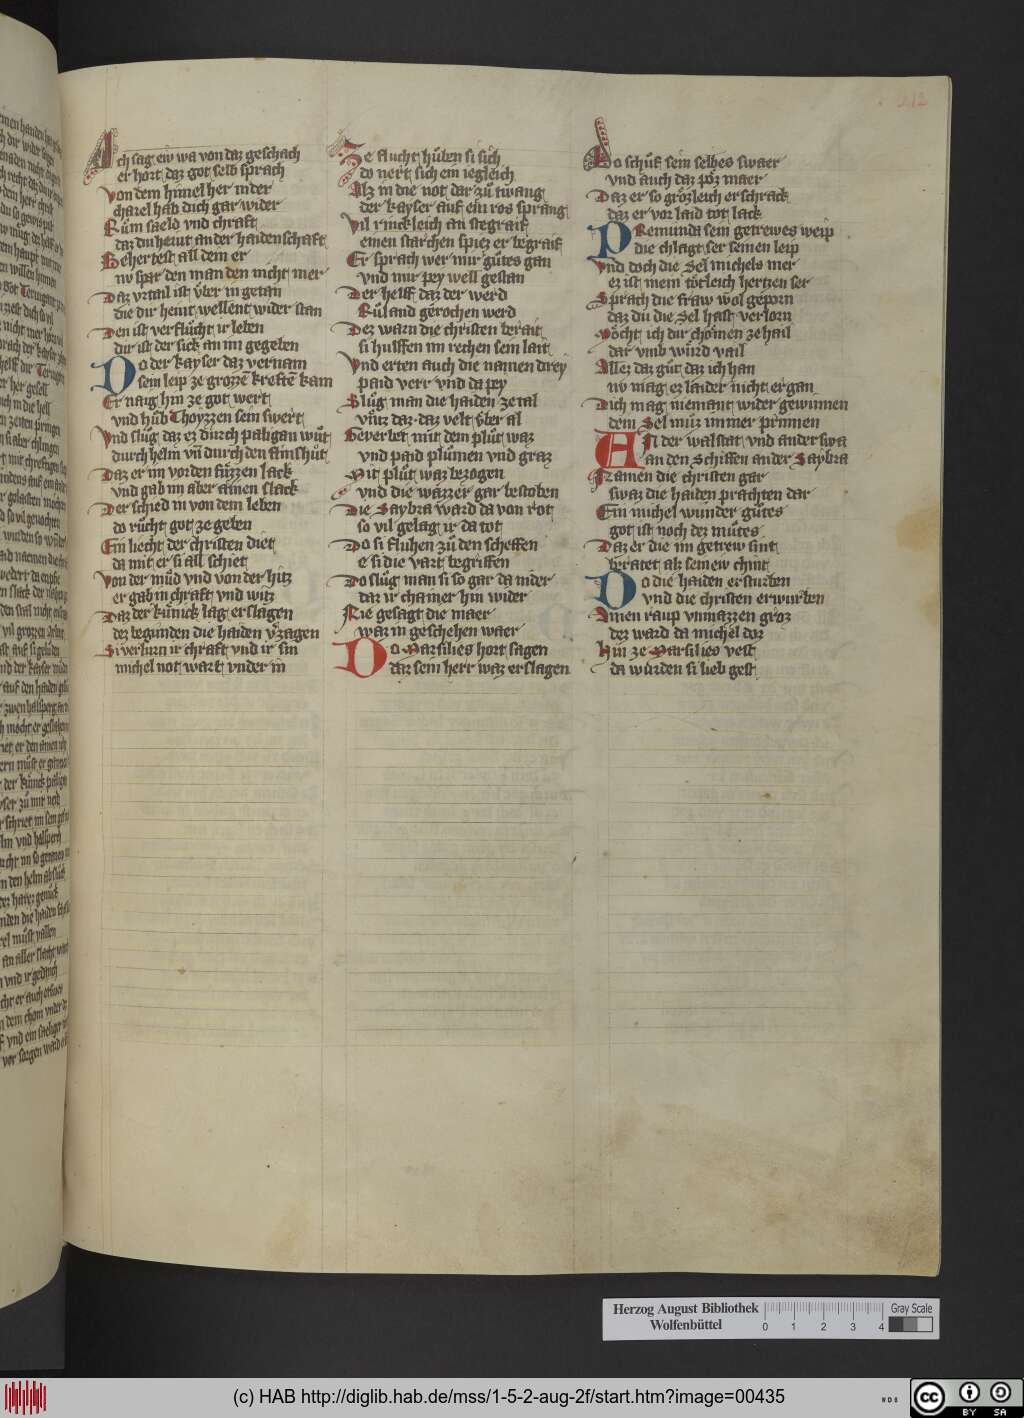 212
Ich sag ew wa von daz geschach
er hort daz got selb sprach
von dem himel her nider
charel hab dich gar wider
Rům saeld vnd chraft
daz du hewt an der haidenschaft
Beherbest all dein er
nv spar den man den nicht mer
Daz vrtail ist v̈ber in getan
die dir hewt wellent wider stan
Den ist verflůcht ir leben
dir ist der sick an im gegeben
Do der kayser daz vernam
sein leip ze grozzē kreftē kam
Er naig him ze got wert
vnd hůb Thoyzzen sein swert
Vnd slůg daz ez dvrch paligan wůt
durch helm vn̄ durch den
Daz er im vor den fůzzen lack
vnd gab im aber ainen slack
Der schied in von dem leben
do růcht got ze geben
Ein liecht der christen diet
da mit er si all schiet
Von der můd vnd von der hitz
er gab in chraft vnd witz
Daz der kůnick lag erslagen
dez begunden die haiden v̓zagen
Si verlurn ir chraft vnd ir sin
michel not wart vnder in
Ze flucht hůben si sich
do nert sich ein iegleich
Alz in die not dar zů twang
der kayser auf ein ros sprang
Vil rinckleich an stegraif
einen starchen spiez er begraif
Er sprach wer mir gůtes gan
vnd mir pey well gestan
Der helff daz der werd
Růland gerochen werd
Dez warn die christen berait
si hulffen im rechen sein lait
Vnd erten auch die namen drey
paid verr vnd da pey
Slůg man die haiden ze tal
vncz daz daz velt v̈ber al
Geverbet mit dem plůt waz
vnd paid plůmen vnd graz
Mit plůt waz bezogen
vnd die wazzer gar bestoben
Die Saybra ward da von rot
so vil gelag ir da tot
Do si fluhen zů den scheffen
e si die vart begriffen
Do slůg man si so gar da nider
daz ir chainer hin wider
Nie gesagt die maer
waz in geschehen waer
Do Marsilies hort sagen
daz sein herr waz erslagen
Do schůf sein selbes swaer
vnd auch daz pöz maer
Daz er so grözleich erschrack
daz er vor laid tot lack
Premunda sein getrewes weip
die chlagt ser seinen leip
Vnd doch die Sel michels mer
ez ist mein törleich hertzen ser
Sprach die fraw wol geporn
daz du die Sel hast verlorn
Möcht ich dir chömen ze hail
dar vmb wurd vail
Allez daz gůt daz ich han
nv mag ez laider nicht ergan
Dich mag niemant wider gewinnen
dein Sel můz immer prinnen
An der walstat vnd anderswa
an den Schiffen an der Saybra
Namen die christen gar
swaz die haiden prachten dar
Ein michel wunder gůtes
got ist noch dez můtes
Daz er die im getrew sint
beratet als seinew chint
Do die haiden ersturben
vnd die christen erwurben
Ainen raup vnmazzen groz
dez ward da michel doz
Hin ze Marsilies vest
da wurden si lieb gest
Herzog August Bibliothek
Wolfenbüttel
0 1 2 3 4
Gray Scale
(c) HAB http://diglib.hab.de/mss/1-5-2-aug-2f/start.htm?image=00435
WDB
cc BY SA